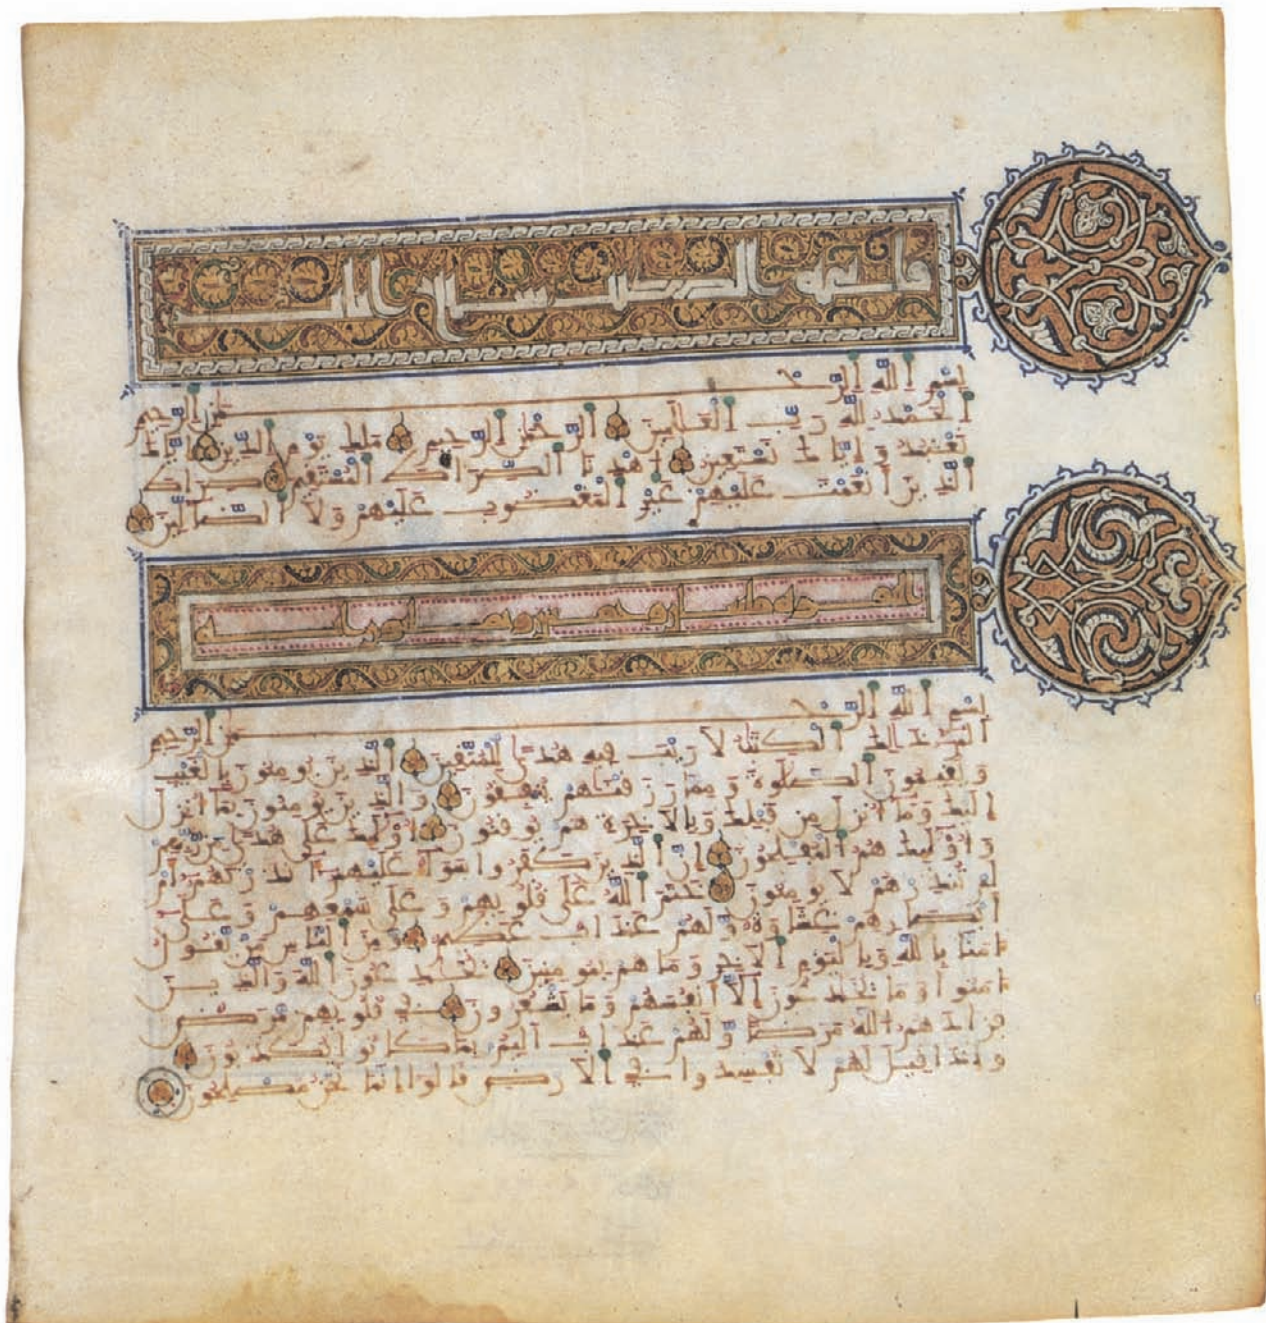 فاتحة الكتب سبع ايات
بِسْمِ اللَّهِ الرَّحْمَنِ الرَّحِيمِ
الْحَمْدُ لِلَّهِ رَبِّ الْعَالَمِينَ الرَّحْمَنِ الرَّحِيمِ مَلِكِ يَوْمِ الدِّينِ إِيَّاكَ
نَعْبُدُ وَإِيَّاكَ نَسْتَعِينُ اهْدِنَا الصِّرَاطَ الْمُسْتَقِيمَ صِرَاطَ
الَّذِينَ أَنْعَمْتَ عَلَيْهِمْ غَيْرِ الْمَغْضُوبِ عَلَيْهِمْ وَلَا الضَّالِّينَ
البقرة
بِسْمِ اللَّهِ الرَّحْمَنِ الرَّحِيمِ
الم ذَلِكَ الْكِتَبُ لَا رَيْبَ فِيهِ هُدًى لِلْمُتَّقِينَ الَّذِينَ يُومِنُونَ بِالْغَيْبِ
وَيُقِيمُونَ الصَّلَوةَ وَمِمَّا رَزَقْنَاهُمْ يُنْفِقُونَ وَالَّذِينَ يُومِنُونَ بِمَا أُنْزِلَ
إِلَيْكَ وَمَا أُنْزِلَ مِنْ قَبْلِكَ وَبِالْاخِرَةِ هُمْ يُوقِنُونَ أُوْلَئِكَ عَلَى هُدًى مِنْ رَبِّهِمْ
وَأُوْلَئِكَ هُمُ الْمُفْلِحُونَ إِنَّ الَّذِينَ كَفَرُوا سَوَاءٌ عَلَيْهِمْ ءَانْذَرْتَهُمْ أَمْ
لَمْ تُنْذِرْهُمْ لَا يُومِنُونَ خَتَمَ اللَّهُ عَلَى قُلُوبِهِمْ وَعَلَى سَمْعِهِمْ وَعَلَى
أَبْصَرِهِمْ غِشَوَةٌ وَلَهُمْ عَذَابٌ عَظِيمٌ وَمِنَ النَّاسِ مَنْ يَقُولُ
ءَامَنَّا بِاللَّهِ وَبِالْيَوْمِ الْاخِرِ وَمَا هُمْ بِمُومِنِينَ يُخَدِعُونَ اللَّهَ وَالَّذِينَ
ءَامَنُوا وَمَا يُخَدِعُونَ إِلَّا أَنْفُسَهُمْ وَمَا يَشْعُرُونَ فِي قُلُوبِهِمْ مَرَضٌ
فَزَادَهُمُ اللَّهُ مَرَضًا وَلَهُمْ عَذَابٌ أَلِيمٌ بِمَا كَانُوا يُكَذِّبُونَ
وَإِذَا قِيلَ لَهُمْ لَا تُفْسِدُوا فِي الْأَرْضِ قَالُوا إِنَّمَا نَحْنُ مُصْلِحُونَ